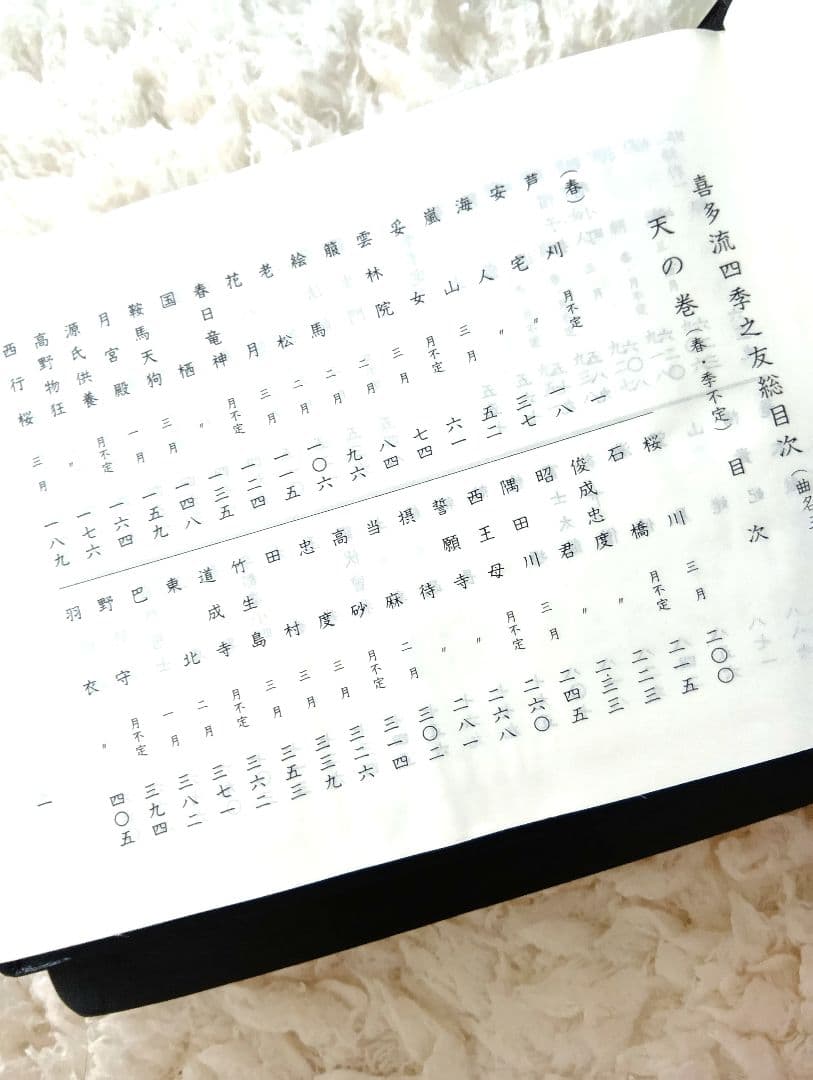 喜多流四季之友総目次(曲名五
天の巻(春・季不定) 目次
(春)
芦刈 月不定 一
安宅 〃 一八
海人 〃 三七
嵐山 三月 五二
妥女 月不定 六一
雲林院 三月 七四
箙 二月 八四
絵馬 二月 九六
老松 二月 一〇六
花月 三月 一一五
春日竜神 月不定 一二四
国栖 〃 一三五
鞍馬天狗 三月 一四八
月宮殿 一月 一五九
源氏供養 月不定 一六四
高野物狂 〃 一七六
西行桜 三月 一八九
桜川 三月 二〇〇
石橋 月不定 二一五
俊成忠度 〃 二二三
昭君 〃 二三三
隅田川 三月 二四五
西王母 月不定 二六〇
誓願寺 〃 二六八
摂待 〃 二八一
当麻 二月 三〇二
高砂 月不定 三一四
忠度 三月 三二六
田村 三月 三三九
竹生島 三月 三五三
道成寺 月不定 三六二
東北 二月 三七一
巴 一月 三八二
野守 月不定 三九四
羽衣 〃 四〇五
一